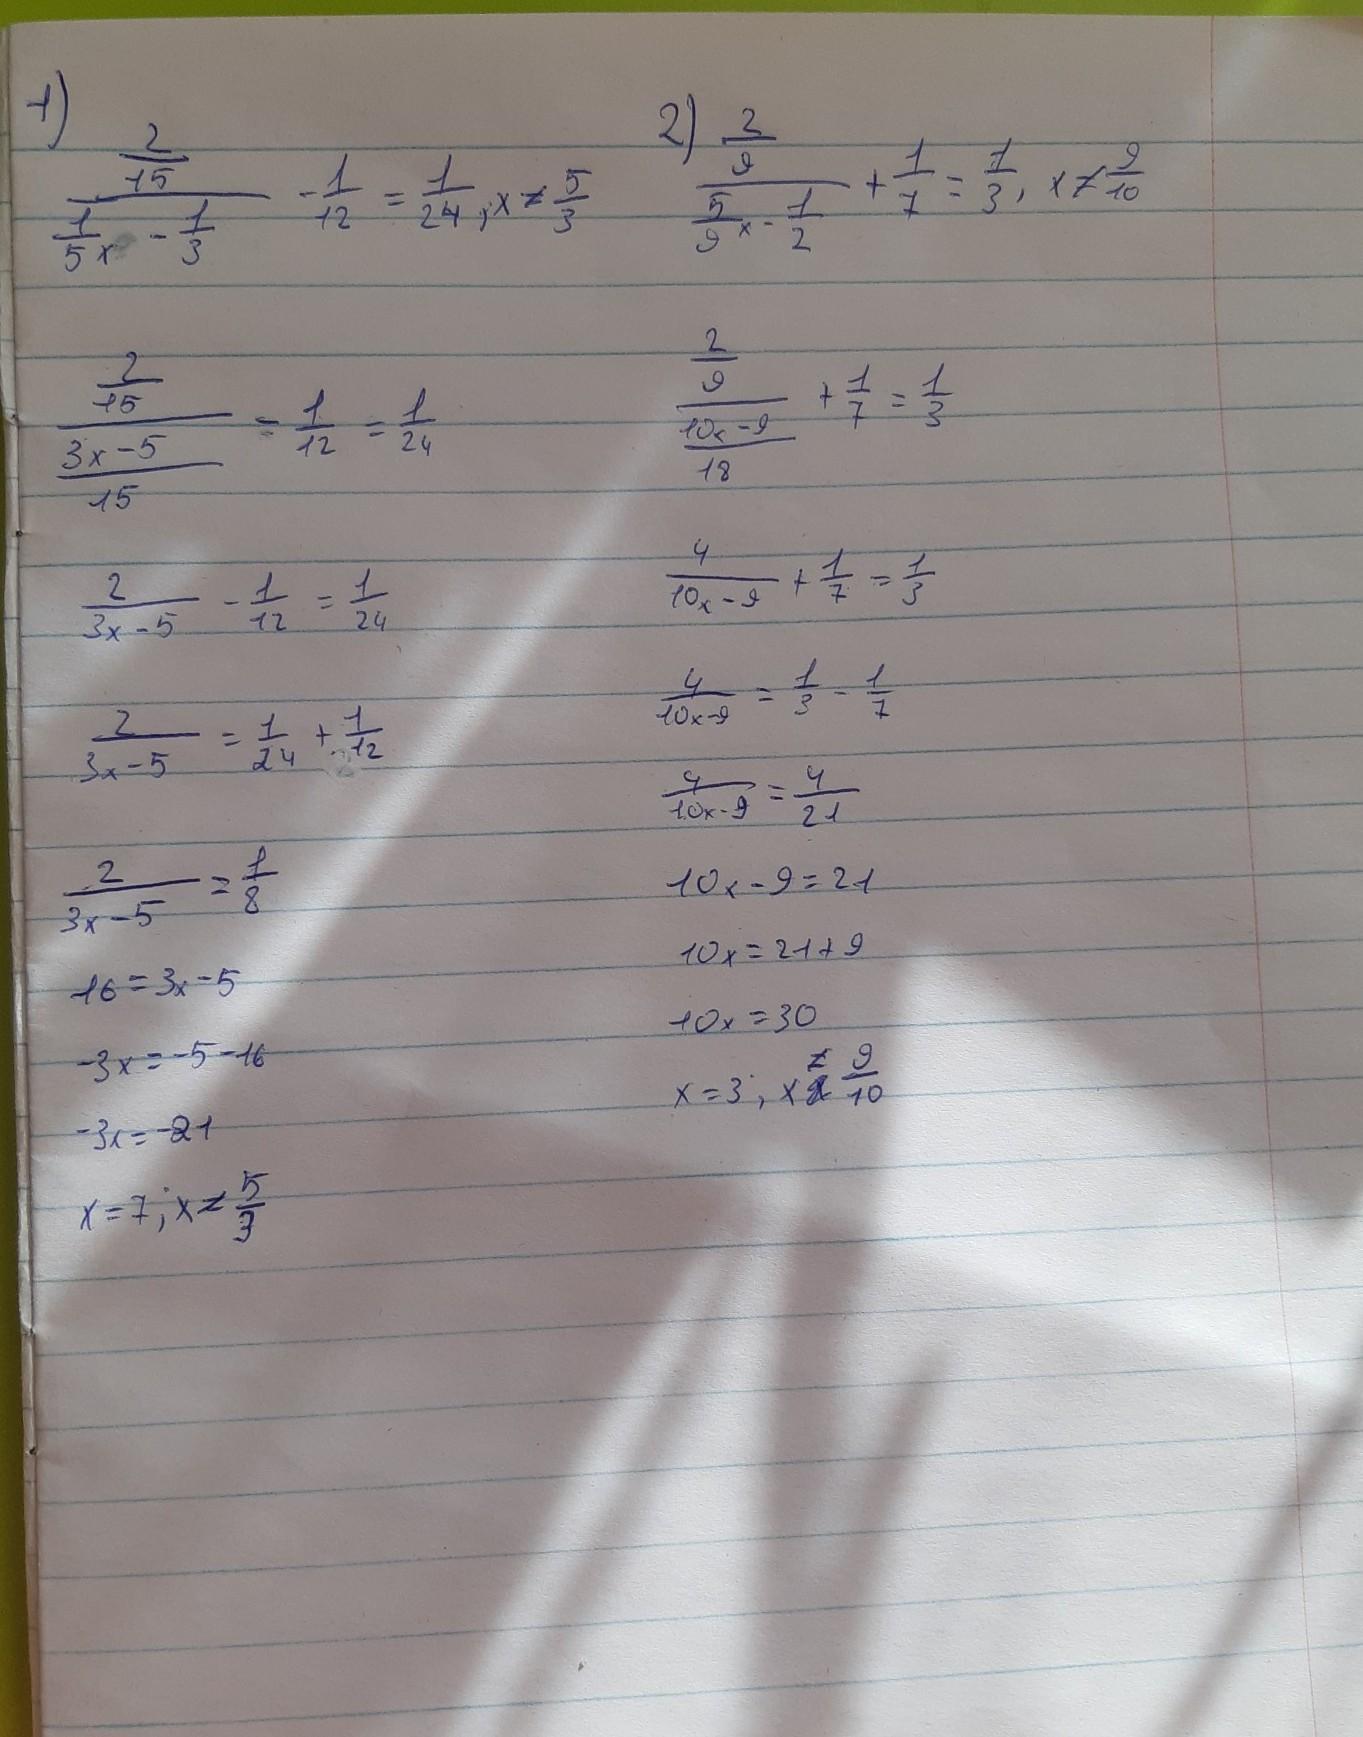 1)
\frac{\frac{2}{15}}{\frac{1}{5}x - \frac{1}{3}} - \frac{1}{12} = \frac{1}{24}, x ≠ \frac{5}{3}
\frac{\frac{2}{15}}{\frac{3x-5}{15}} = \frac{1}{12} = \frac{1}{24}
\frac{2}{3x-5} - \frac{1}{12} = \frac{1}{24}
\frac{2}{3x-5} = \frac{1}{24} + \frac{1}{12}
\frac{2}{3x-5} = \frac{1}{8}
16 = 3x-5
-3x = -5-16
-3x = -21
x = 7; x ≠ \frac{5}{3}
2) \frac{\frac{2}{9}}{\frac{5}{9}x - \frac{1}{2}} + \frac{1}{7} = \frac{1}{3}, x ≠ \frac{9}{10}
\frac{\frac{2}{9}}{\frac{10x-9}{18}} + \frac{1}{7} = \frac{1}{3}
\frac{4}{10x-9} + \frac{1}{7} = \frac{1}{3}
\frac{4}{10x-9} = \frac{1}{3} - \frac{1}{7}
\frac{4}{10x-9} = \frac{4}{21}
10x-9 = 21
10x = 21+9
10x = 30
x = 3, x ≠ \frac{9}{10}